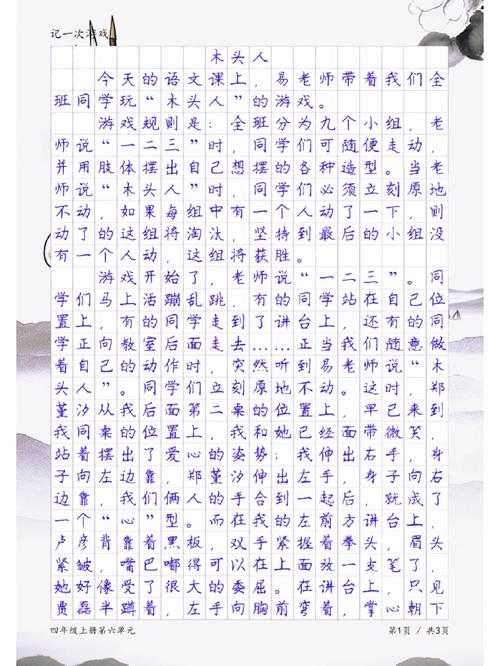 记一次游戏
木头人
今天的语文课上，易老师带着我们全
班同学玩“木头人”的游戏。
游戏规则是：全班分为九个小组，老
师说“一二三”时，同学们可随便走动，
并用肢体摆出自己想摆的各种造型。当老
师说“木头人”时，同学们必须立刻原地
不动，如果每组中有一个人动了一下，则
动了的这组将淘汰，坚持到最后的小组没
有一个人动，这组将获胜。
游戏开始了，老师说“一二三”。同
学们马上活蹦乱跳，有的同学站在自己位
置上，有的同学走到了讲台上，还有的同
学正向教室后面走去……正当我们随意做
着自己的动作时，突然听到易老师说“木
头人”。同学们立刻原地不动。这时，郑
董汐从我后面第二桌的位置上，早已来到
我同桌的位置上，我和她已经面带微笑，
站着摆出了爱心的姿势：我伸出右手，身
子向左边靠，郑董汐伸出左手，身子向右
边靠，我们俩人的手合到一起后，就成了
一个“心”型。而在我的左前方讲台上，
卢彦背靠着黑板，双手紧握着拳头，眉头
紧皱，嘴巴嘟得可以在上面放一支笔了，
她好像受了很大的委屈。在讲台上，只见
贾磊半蹲着，左手向胸前弯着，掌心朝下
四年级上册第六单元
第1页 / 共3页